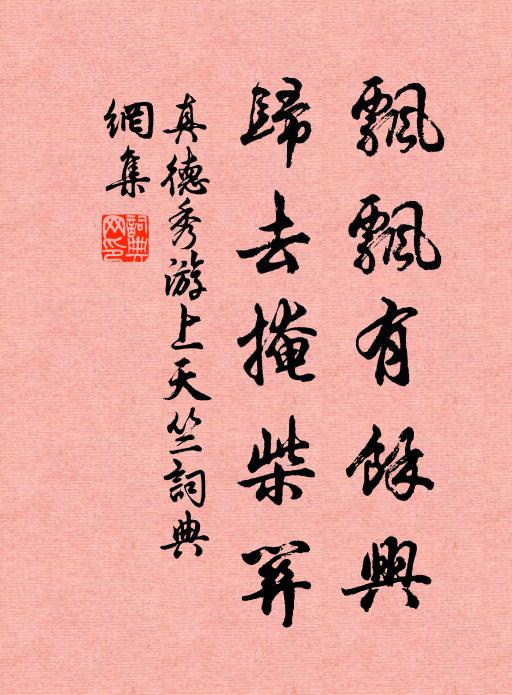 飄飄有餘興
歸去掩柴關
真德秀游上天竺詞典
網集
詞典
网印